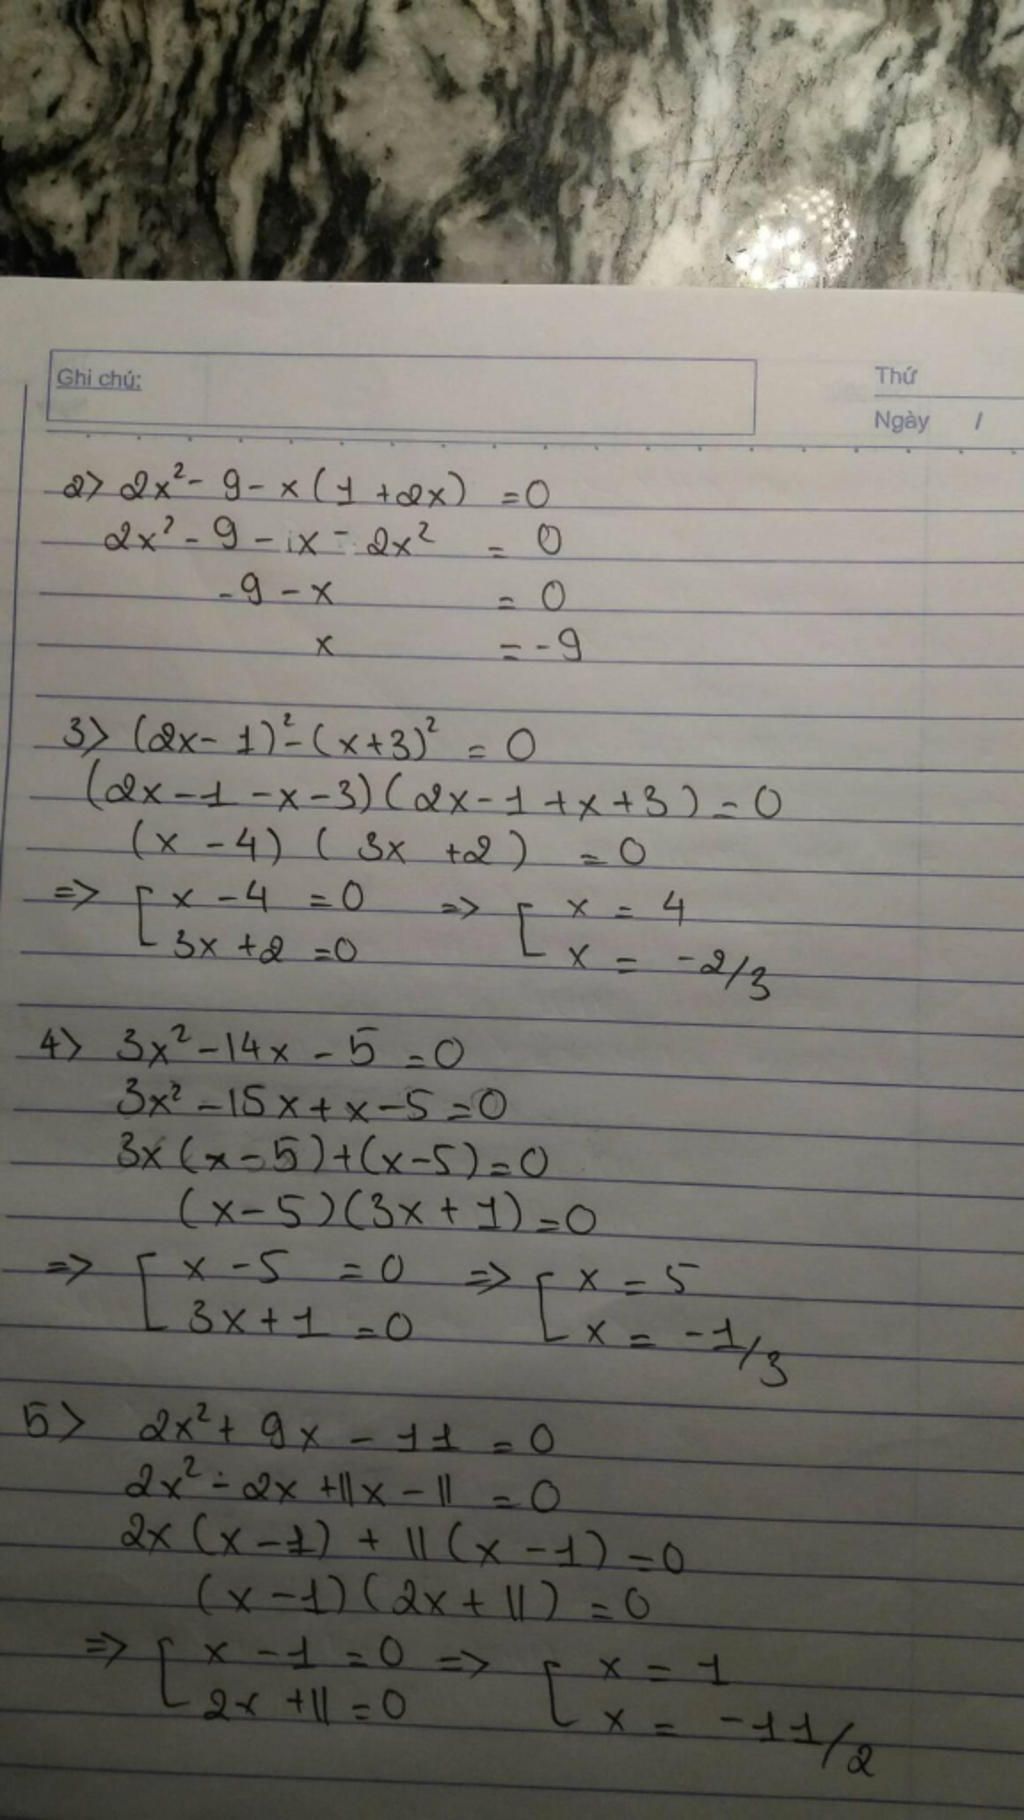 Ghi chú:
Thứ
Ngày /
2> 2x² - 9 - x(1 + 2x) = 0
2x² - 9 - 1x - 2x² = 0
-9 - x = 0
x = -9
3> (2x - 1)² - (x+3)² = 0
(2x - 1 - x - 3)(2x - 1 + x + 3) = 0
(x - 4) ( 3x + 2 ) = 0
=> [ x - 4 = 0 => [ x = 4
3x + 2 = 0 x = -2/3
4> 3x² - 14x - 5 = 0
3x² - 15x + x - 5 = 0
3x(x - 5) + (x - 5) = 0
(x - 5)(3x + 1) = 0
=> [ x - 5 = 0 => [ x = 5
3x + 1 = 0 x = -1/3
5> 2x² + 9x - 11 = 0
2x² - 2x + 11x - 11 = 0
2x (x - 1) + 11 (x - 1) = 0
(x - 1)(2x + 11) = 0
=> [ x - 1 = 0 => [ x = 1
2x + 11 = 0 x = -11/2